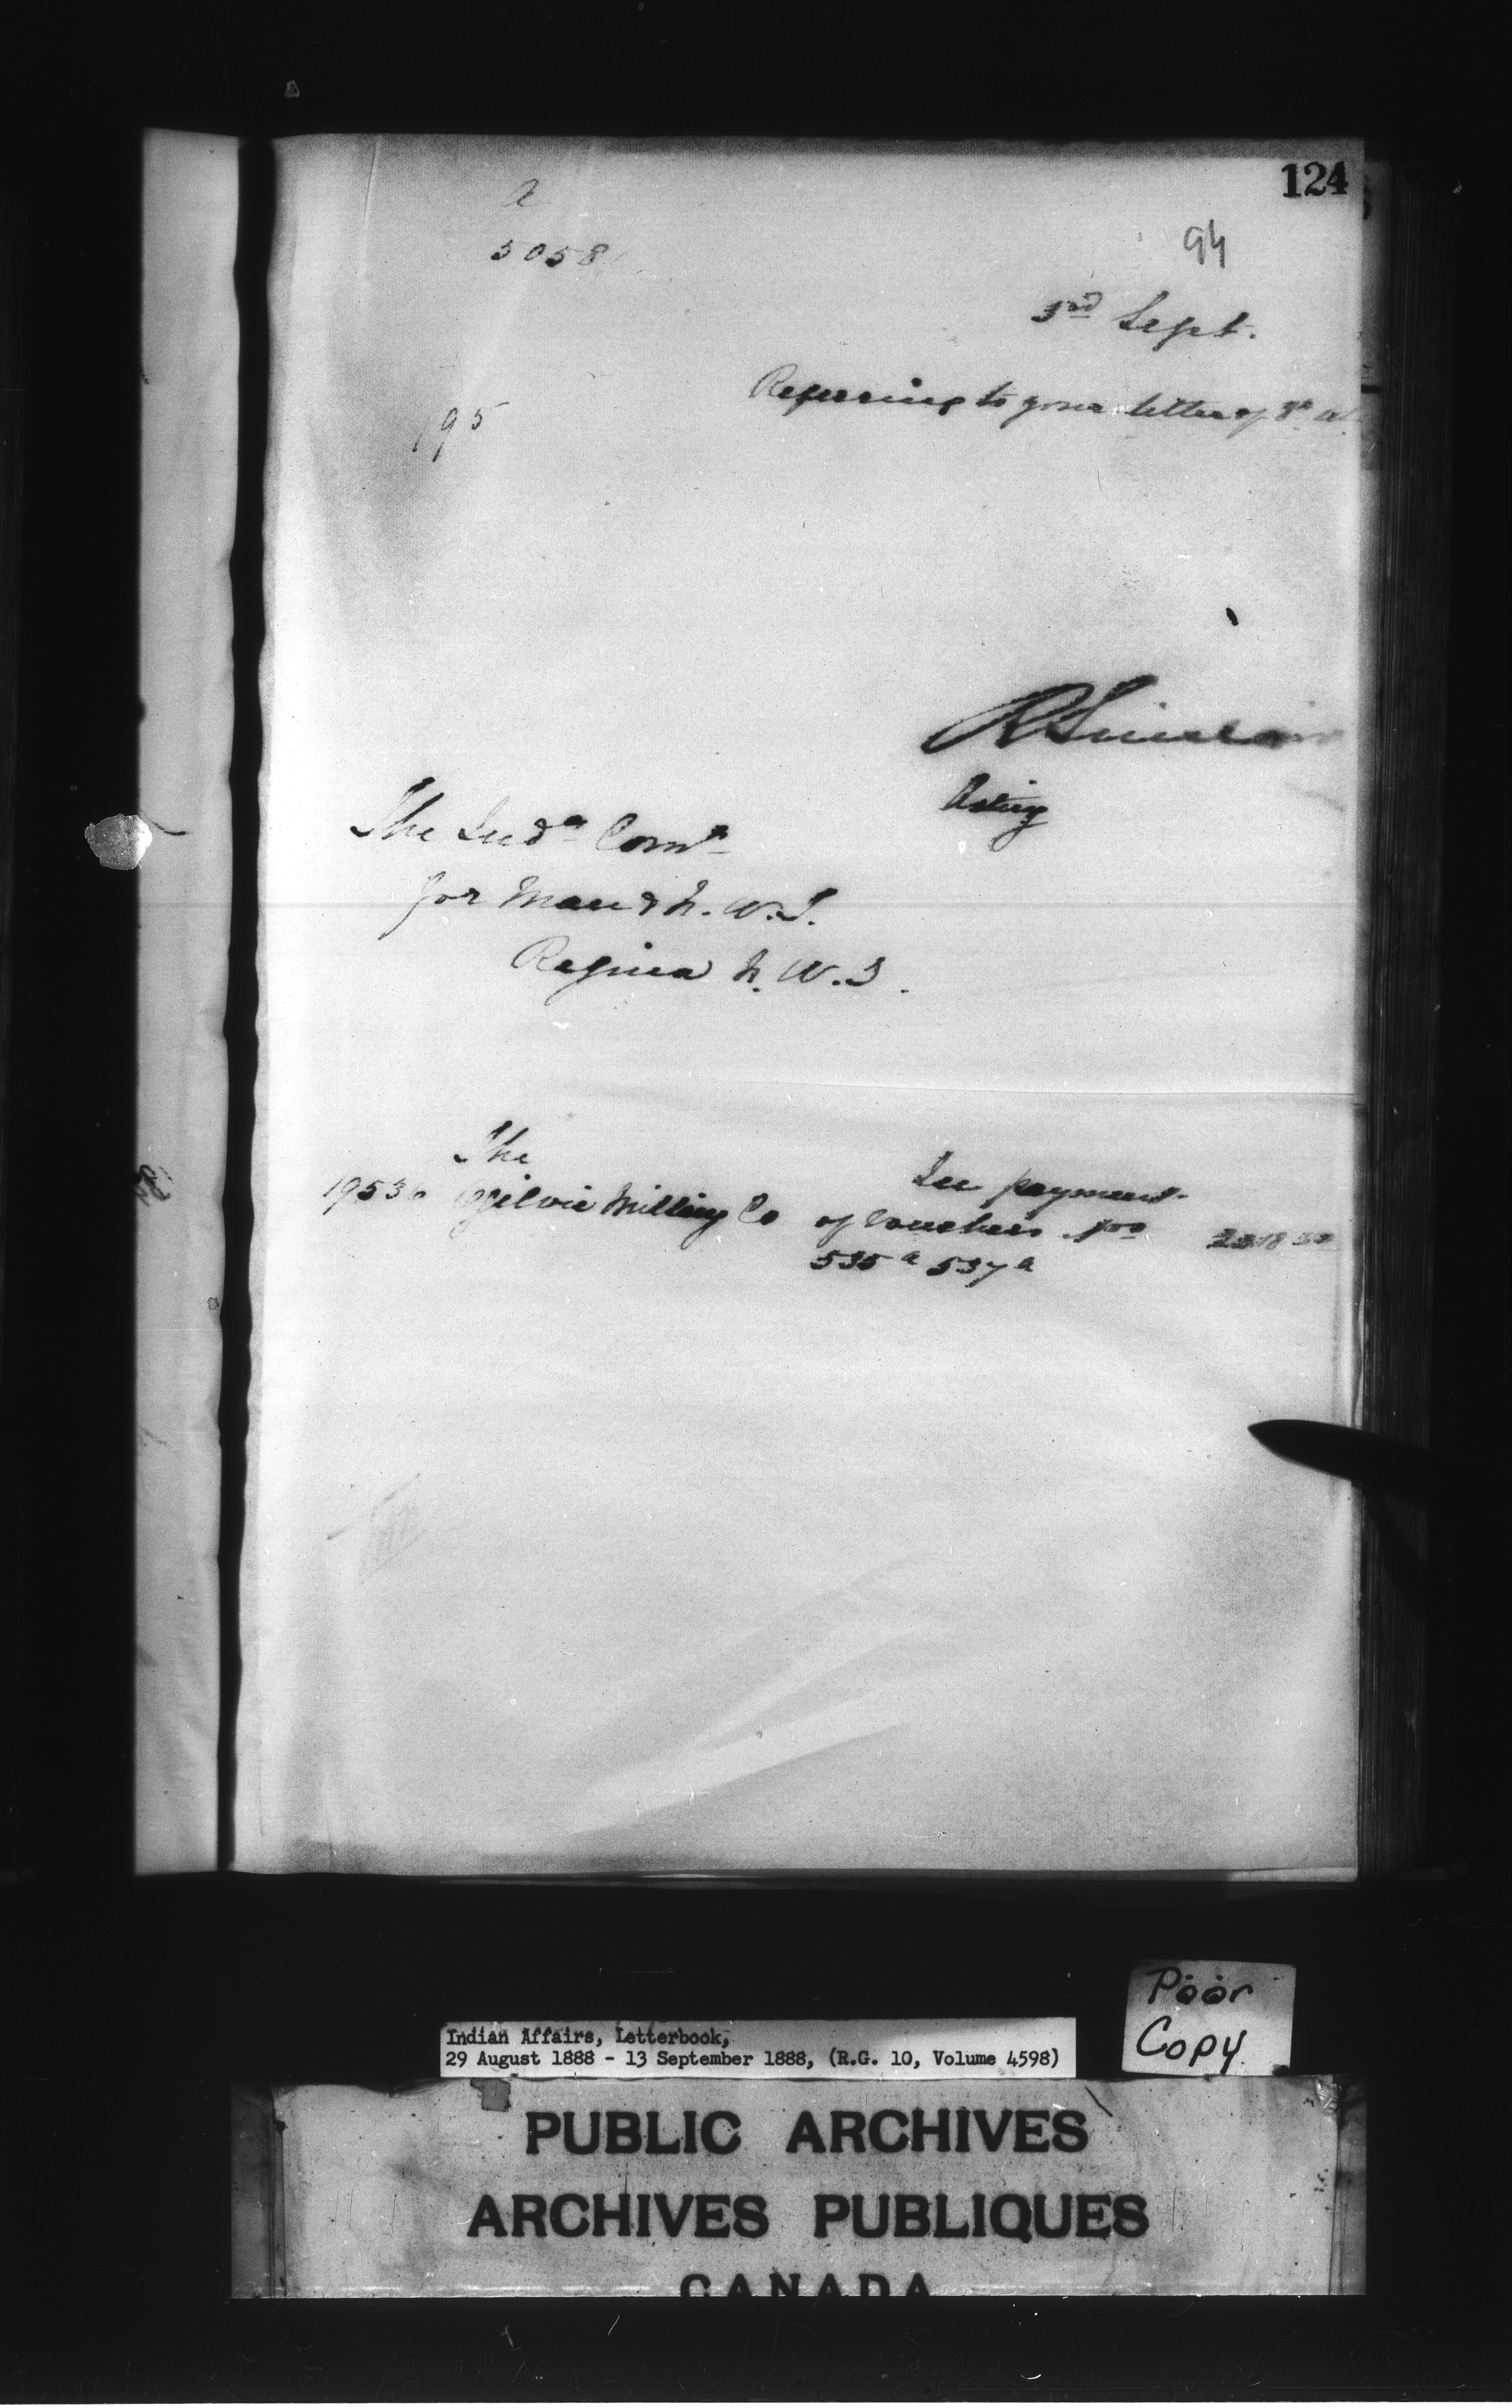 124
a
94
5058
3rd Sept.
Referring to your letter of
195
R Sinclair
Acting
The Indn Comr
for Man & N.W.T.
Regina N.W.T.
The
In payment
19536 Ogilvie Milling Co of vouchers nos
535a 537a
Poor
Copy
Indian Affairs, Letterbook,
29 August 1888 - 13 September 1888, (R.G. 10, Volume 4598)
PUBLIC ARCHIVES
ARCHIVES PUBLIQUES
CANADA